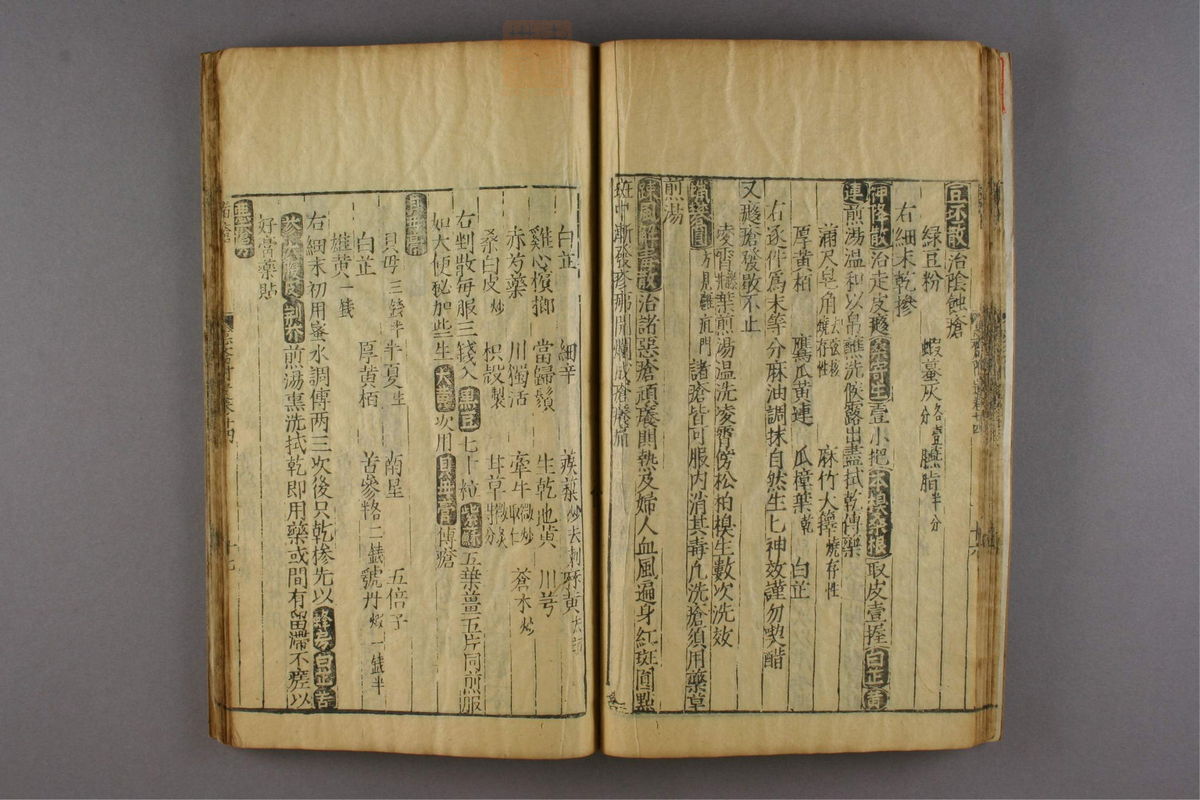 豆坯散治陰蝕瘡
綠豆粉　蝦蟇灰各壹分　臙脂半分
右細末乾摻
神降散治走皮㿔桑寄生壹小把本根桑根取皮壹握白芷黃
連煎湯溫和以帛蘸洗候露出盡拭乾傅藥
蒲尺皂角去弦核燒存性　麻竹大籜燒存性
厚黃柏　鷹瓜黃連　瓜撞葉乾　白芷
右逐件爲末等分麻油調抹自然生匕神效謹勿喫醋
又㿔瘡發散不止
凌霄葉煎湯溫洗凌霄傍松柏樹生數次洗效
蠟礬圓方見難肛門諸瘡皆可服內消其毒凡洗瘡須用藥草
煎湯
踈風解毒散治諸惡瘡頑癢壯熱及婦人血風遍身紅斑圓點
斑中漸發疹痱開爛成瘡癢痛
白芷　細辛　蒺䔧炒去刺　大黃
雞心檳榔　當歸鬚　生乾地黃　川芎
赤芍藥　川獨活　牽牛微炒取仁　蒼朮炒
桑白皮炒　枳殼製　甘草
右剉散每服三錢入黑豆七十粒紫蘇五葉薑五片同煎服
如大便秘加些生大黃次用貝母膏傅瘡
貝母膏
貝母三錢半　半夏生　南星　五倍子
白芷　厚黃柏　苦參各二錢　虢丹煅一錢半
雄黃一錢
右細末初用蜜水調傅兩三次後只乾摻先以蜂房白芷苦
參大腹皮荊芥煎湯熏洗拭乾即用藥或間有留滯不瘥以
好膏藥貼
惡瘡方